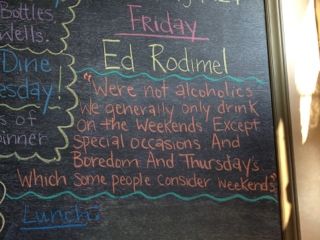 Bottles,
Wells.
Dine
esday!
s of
inner
Friday
Ed Rodimel
"Were not alcoholics
we generally only drink
on the weekends Except
special occasions And
Boredom And Thursday's
Which some people consider weekends"
Lunch